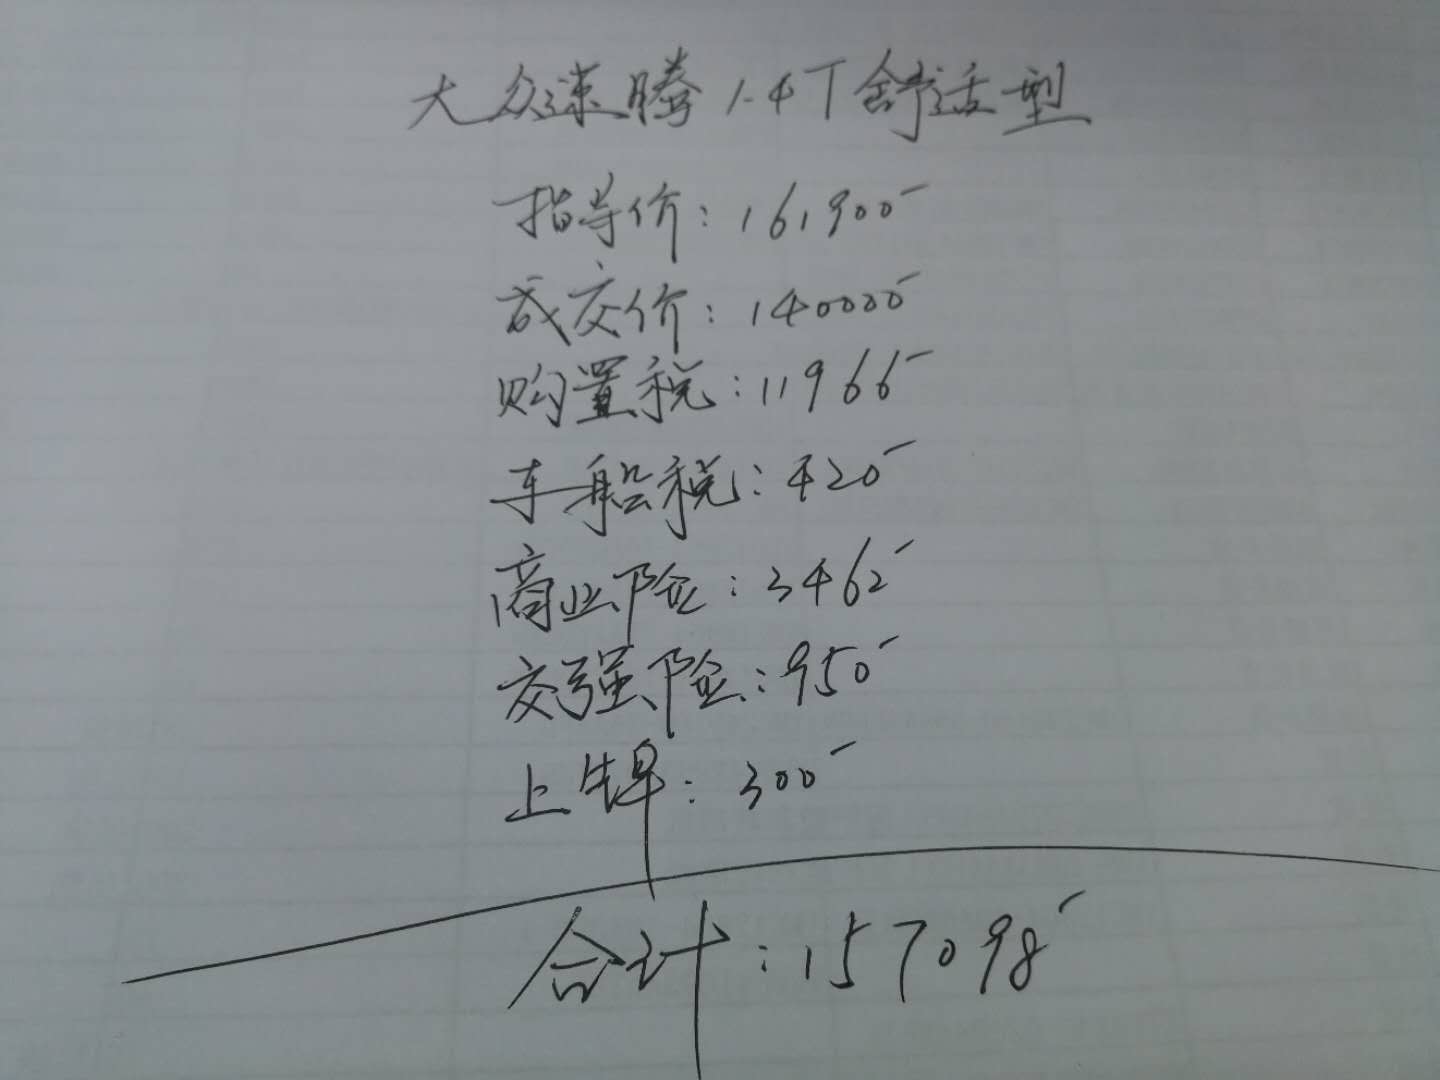 大众速腾1.4T舒适型
指导价：161900
成交价：140000
购置税：11966
车船税：420
商业险：3462
交强险：950
上牌：300
合计：157098